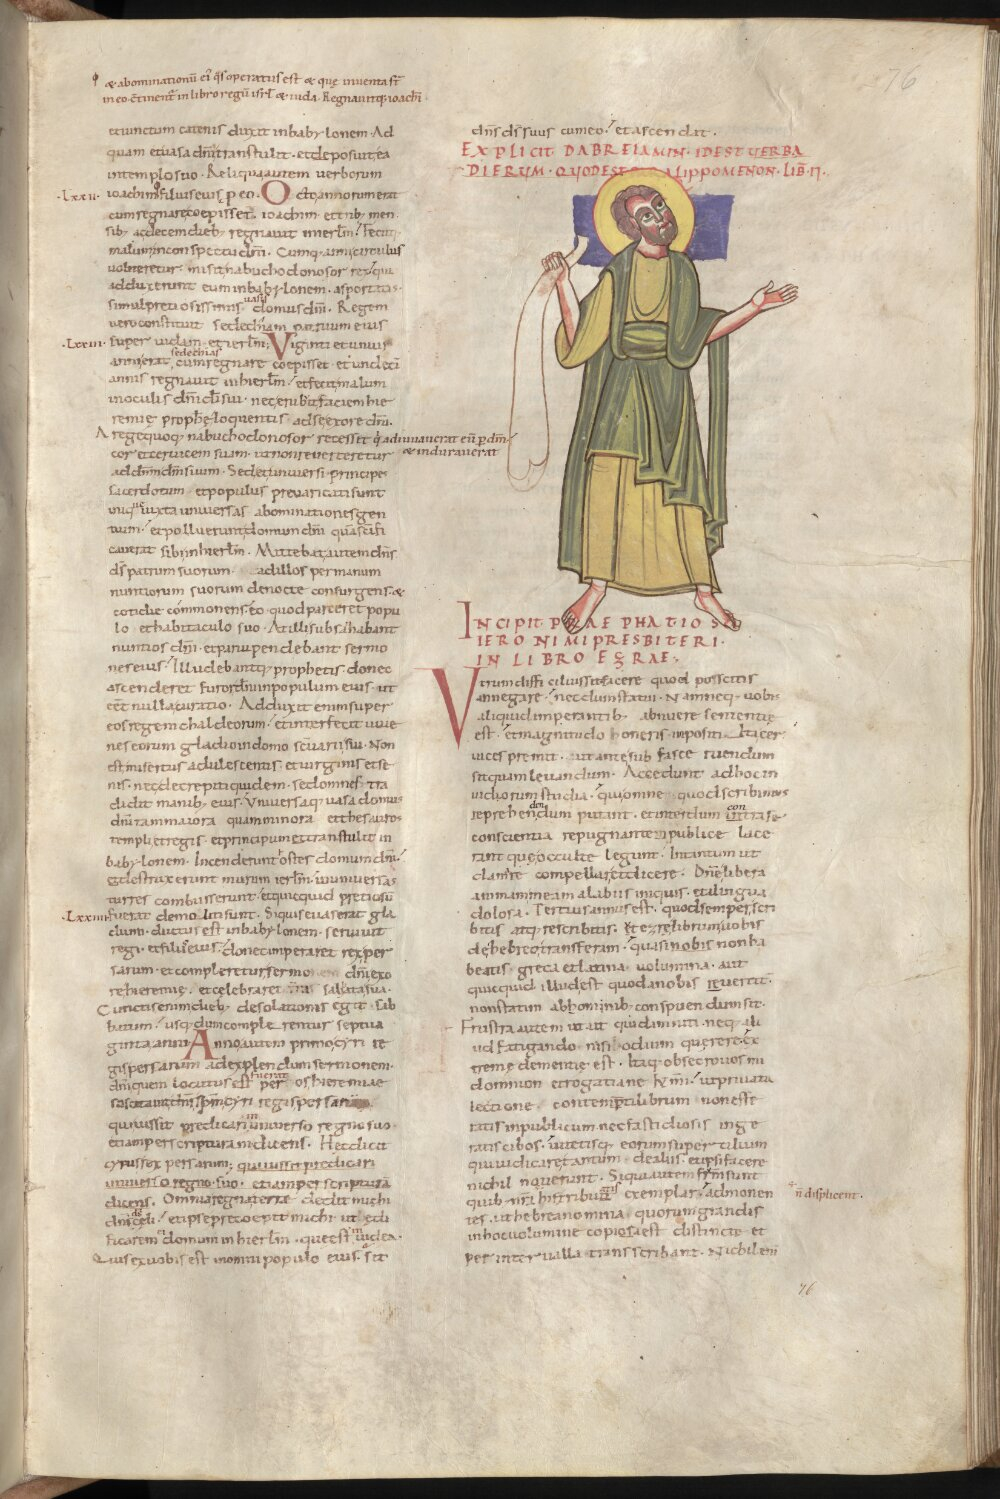 76
& abominationū ei q̄s operatus est & quę inventa st̄
in eo c̄tinent̄ in libro regū isrl̄ & iuda. Regnavitq; ioachī
et vinctum catenis duxit in babylonem. Ad
quam et vasa dnī transtulit. et deposuit ea
in templo suo. Reliqua autem verborum
.Lxxii. ioachim filius eius p eo. Octo annorum erat
cum regnare coepisset ioachim. et trib; men
sib; ac decem dieb; regnavit in ierl̄m. Fecitq;
malum in conspectu dn̄i. Cumq; anni circulus
volveretur. misit nabuchodonosor rex. qui
adduxerunt eum in babylonem. asportatis
simul pretiosissimis vasis domus dn̄i. Regem
vero constituit sedechiam patruum eius
.Lxxiii. super iudam et ierl̄m; Viginti et unius
anni erat sedechias cum regnare coepisset. et undeci
annis regnavit in hierl̄m. et fecit malum
in oculis dn̄i dī sui. nec erubuit faciem hie
remię prophetę loquentis ad se ex ore dn̄i.
A rege quoq; nabuchodonosor recessit q̄ adiuraverat eū p dm̄
& induraverat
cor et cervicem suam. ut non reverteretur
ad dn̄m dm̄ suum. Sed et universi principes
sacerdotum et populus prevaricati sunt
iniq; iuxta universas abominationes gen
tium. et polluerunt domum dn̄i quā sc̄ifi
caverat sibi in hierl̄m. Mittebat autem dn̄s
ds̄ patrum suorum ad illos per manum
nuntiorum suorum de nocte consurgens. &
cotidie commonens. eo quod parceret popu
lo et habitaculo suo. At illi subsannabant
nuntios dn̄i. et parvi pendebant sermo
nes eius. Illudebantq; prophetis. donec
ascenderet furor dn̄i in populum eius. ut
eēt nulla curatio. Adduxit enim super
eos regem chaldeorum. et interfecit iuve
nes eorum gladio in domo sc̄uarii sui. Non
est misertus adulescentis. et virginis et se
nis. nec decrepiti quidem. sed omnes tra
didit manib; eius. Universaq; vasa domus
dn̄i tam maiora quam minora. et thesauros
templi et regis. et principum transtulit in
babylonem. Incenderunt hostes domum dn̄i.
et destruxerunt murum ierl̄m. universas
turres combusserunt. et quicquid pretiosū
.Lxxiiii. fuerat demoliti sunt. Siquis evaserat gla
dium. ductus est in babylonem. servivit
regi. et filiis eius. donec imperaret rex per
sarum. et compleretur sermo dn̄i ex o
re hieremię. et celebraret terra sabbata sua.
Cunctis enim dieb; desolationis egit sab
batum. usq; dum complerentur septua
ginta anni. Anno autem primo cyri re
gis persarum ad explendum sermonem
dn̄i quem locutus fuerat per os hieremiae
suscitavit dn̄s spm̄ cyri regis persarum
qui iussit predicari in universo regno suo.
etiam per scripturam dicens. Hec dicit
cyrus rex persarum; qui iussit predicari
universo regno suo. etiam per scripturā
dicens. Omnia regna terrae dedit michi
dn̄s ds̄ cęli. et ipse precoepit michi ut ędi
ficarem ei domum in hierl̄m. que est in iudea.
Quis ex vobis est in omni populo eius. sit
dn̄s ds̄ suus cum eo. et ascendat.
EXPLICIT DABREIAMIN. ID EST VERBA
DIERUM. QUOD EST PARALIPPOMENON. LIB̄. II.
INCIPIT PRAEPHATIO SCI
IERONIMI PRESBITERI.
IN LIBRO EZRAE.
Utrum difficilius sit facere quod poscitis
an negare. necdum statui. Nam neq; vobis
aliquid imperantib; abnuere sententię
est. et magnitudo honeris impositi. ita cer
vices premit. ut ante sub fasce ruendum
sit quam levandum. Accedunt ad hoc in
vidiorum studia. qui omne quod scribimus
reprehendendum putant. et interdum contra se
conscientia repugnante. publice lace
rant quę occulte legunt. In tantum ut
clamare compellar et dicere. Dn̄e libera
animam meam a labiis iniquis. et a lingua
dolosa. Tertius annus est. quod semper scri
bitis atq; rescribitis. ut ezrę librum vobis
de hebreo transferam. quasi nobis non ha
beatis greca et latina volumina. aut
quicquid illud est quod a nobis vertitur.
non statim ab hominib; conspuendum sit.
Frustra autem ut ait quidam niti. neq; ali
ud fatigando nisi hodium querere. ex
tremę dementię est. Itaq; obsecro vos mi
domnion et rogatiane kr̄mi. ut privata
lectione contempti librum non effe
ratis in publicum. nec fastidiosis inge
ratis cibos. vitetisq; eorum supercilium
qui iudicare tantum de aliis. et ipsi facere
nihil noverunt. Siqui autem fratrum sunt
quib; nr̄a n̄ displicent. his tribuatis exemplar. admonen
tes. ut hebrea nomina quorum grandis
in hoc volumine copia est. distincte et
per intervalla transscribant. Nichil eni
76